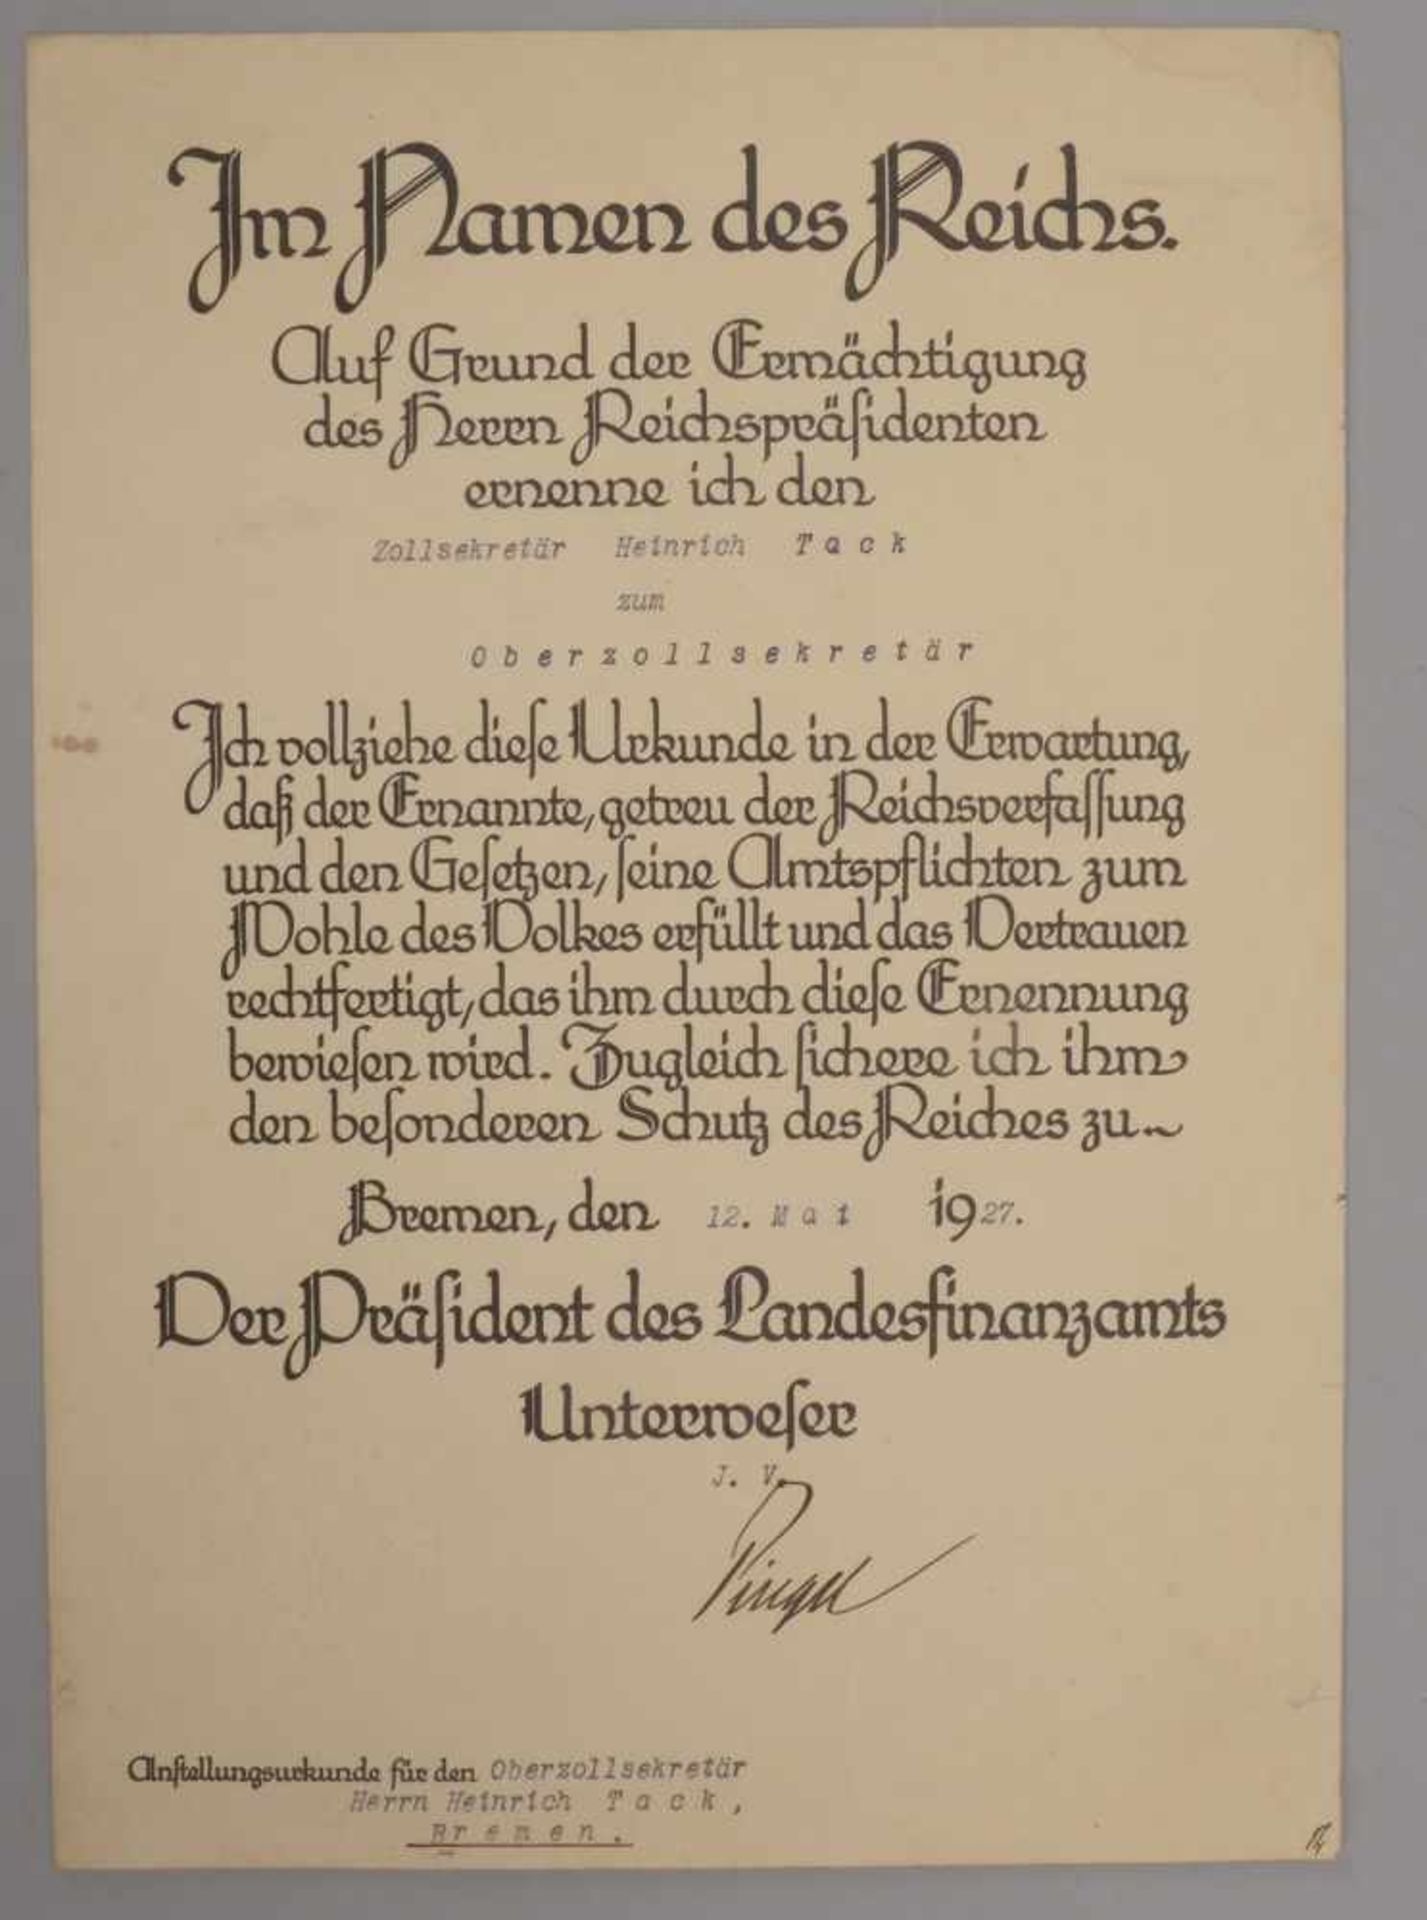 Im Namen des Reichs.
Auf Grund der Ermächtigung
des Herrn Reichspräsidenten
ernenne ich den
Zollsekretär Heinrich Tack
zum
Oberzollsekretär
Ich vollziehe diese Urkunde in der Erwartung,
daß der Ernannte, getreu der Reichsverfassung
und den Gesetzen, seine Amtspflichten zum
Wohle des Volkes erfüllt und das Vertrauen
rechtfertigt, das ihm durch diese Ernennung
bewiesen wird. Zugleich sichere ich ihm
den besonderen Schutz des Reiches zu.
Bremen, den 12. Mai 1927.
Der Präsident des Landesfinanzamts
Unterweser
J. V.
Anstellungsurkunde für den Oberzollsekretär
Herrn Heinrich Tack,
Bremen.